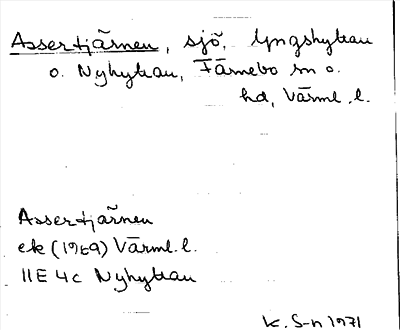 Assertjärnen, sjö, Lyngshyttan
o. Nyhyttan, Färnebo sn o.
hd, Värml. l.
Assertjärnen
ek (1969) Värml. l.
11E 4c Nyhyttan
K. S-n 1971